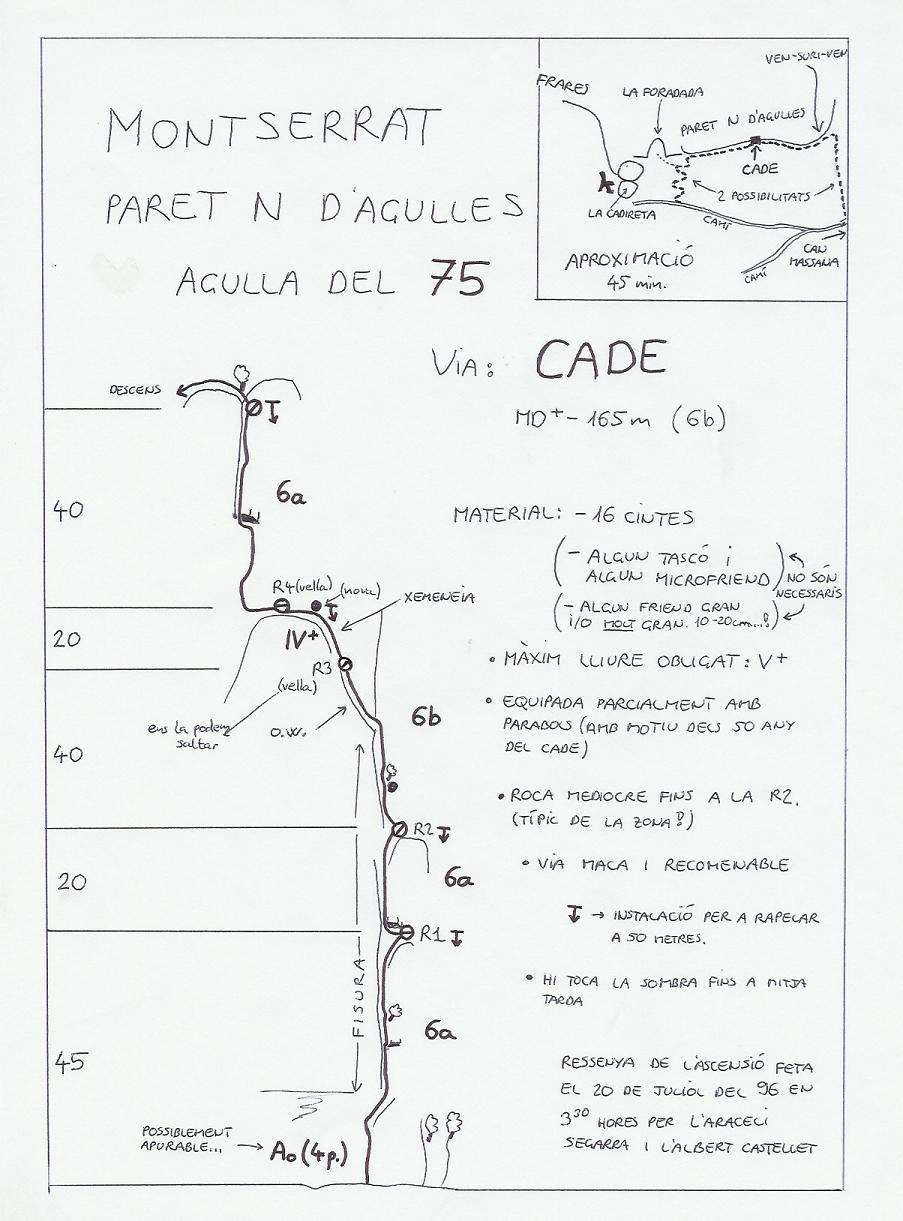 MONTSERRAT
PARET N D'AGULLES
AGULLA DEL 75
FRARES
LA FORADADA
VEN-SURI-VEN
PARET N D'AGULLES
CADE
2 POSSIBILITATS
LA CADIRETA
CAMÍ
CAN
MASSANA
CAMÍ
APROXIMACIÓ
45 min.
VIA: CADE
MD+ - 165m (6b)
DESCENS
40
6a
R4 (vella)
(nova)
XEMENEIA
20
IV+
R3
(vella)
ens la podem
saltar
O.W.
6b
40
R2
20
6a
R1
FISURA
6a
45
POSSIBLEMENT
APURABLE...
A0 (4p.)
MATERIAL: - 16 CINTES
(- ALGUN TASCÓ i
ALGUN MICROFRIEND)
NO SÓN
NECESSARIS
(- ALGUN FRIEND GRAN
i/O MOLT GRAN. 10-20cm...!)
• MÀXIM LLIURE OBLIGAT: V+
• EQUIPADA PARCIALMENT AMB
PARABOLS (AMB MOTIU DELS 50 ANY
DEL CADE)
• ROCA MEDIOCRE FINS A LA R2.
(TÍPIC DE LA ZONA!)
• VIA MACA I RECOMENABLE
→ INSTALACIÓ PER A RAPELAR
A 50 METRES.
• HI TOCA LA SOMBRA FINS A MITJA
TARDA
RESSENYA DE L'ASCENSIÓ FETA
EL 20 DE JULIOL DEL 96 EN
3³⁰ HORES PER L'ARACELI
SEGARRA I L'ALBERT CASTELLET